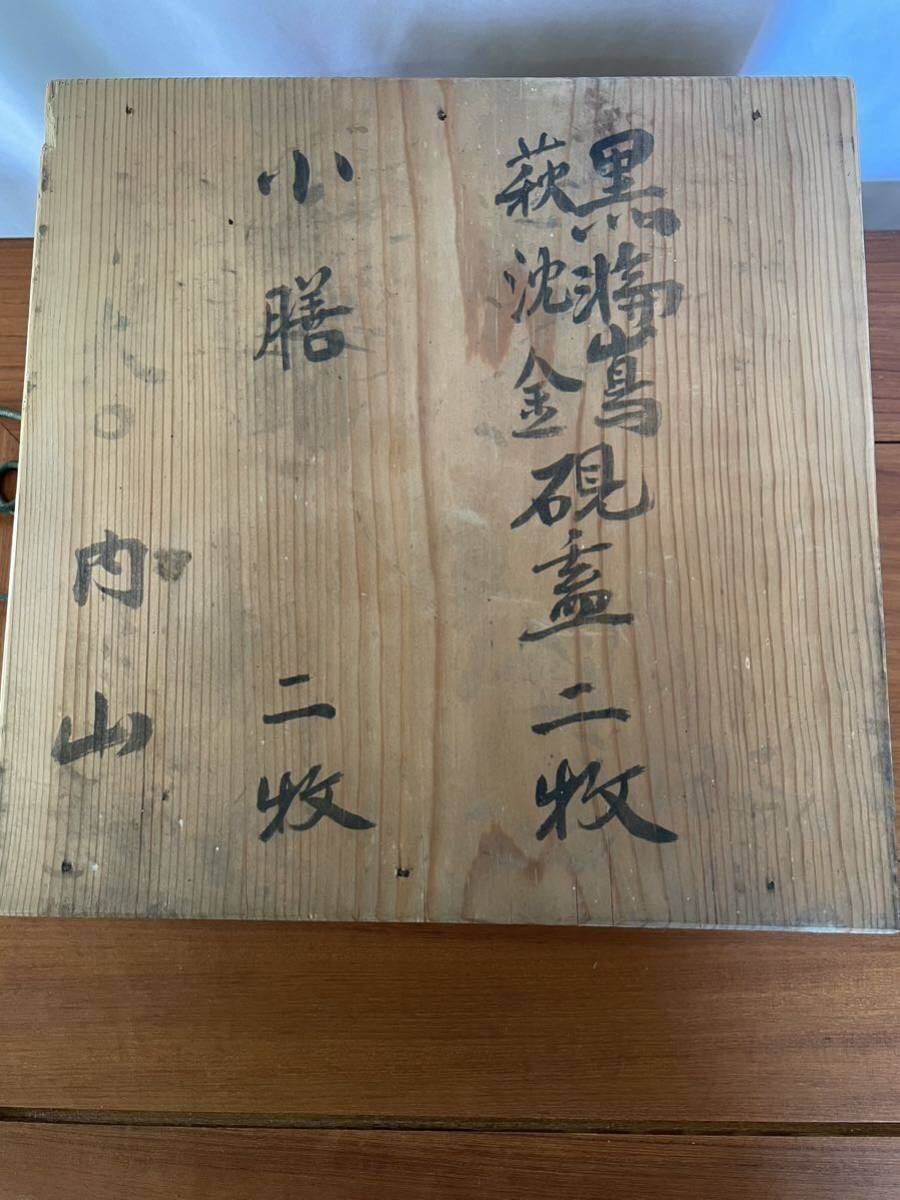 黒嶌
萩沈金
硯蓋 二枚
小膳 二枚
内山